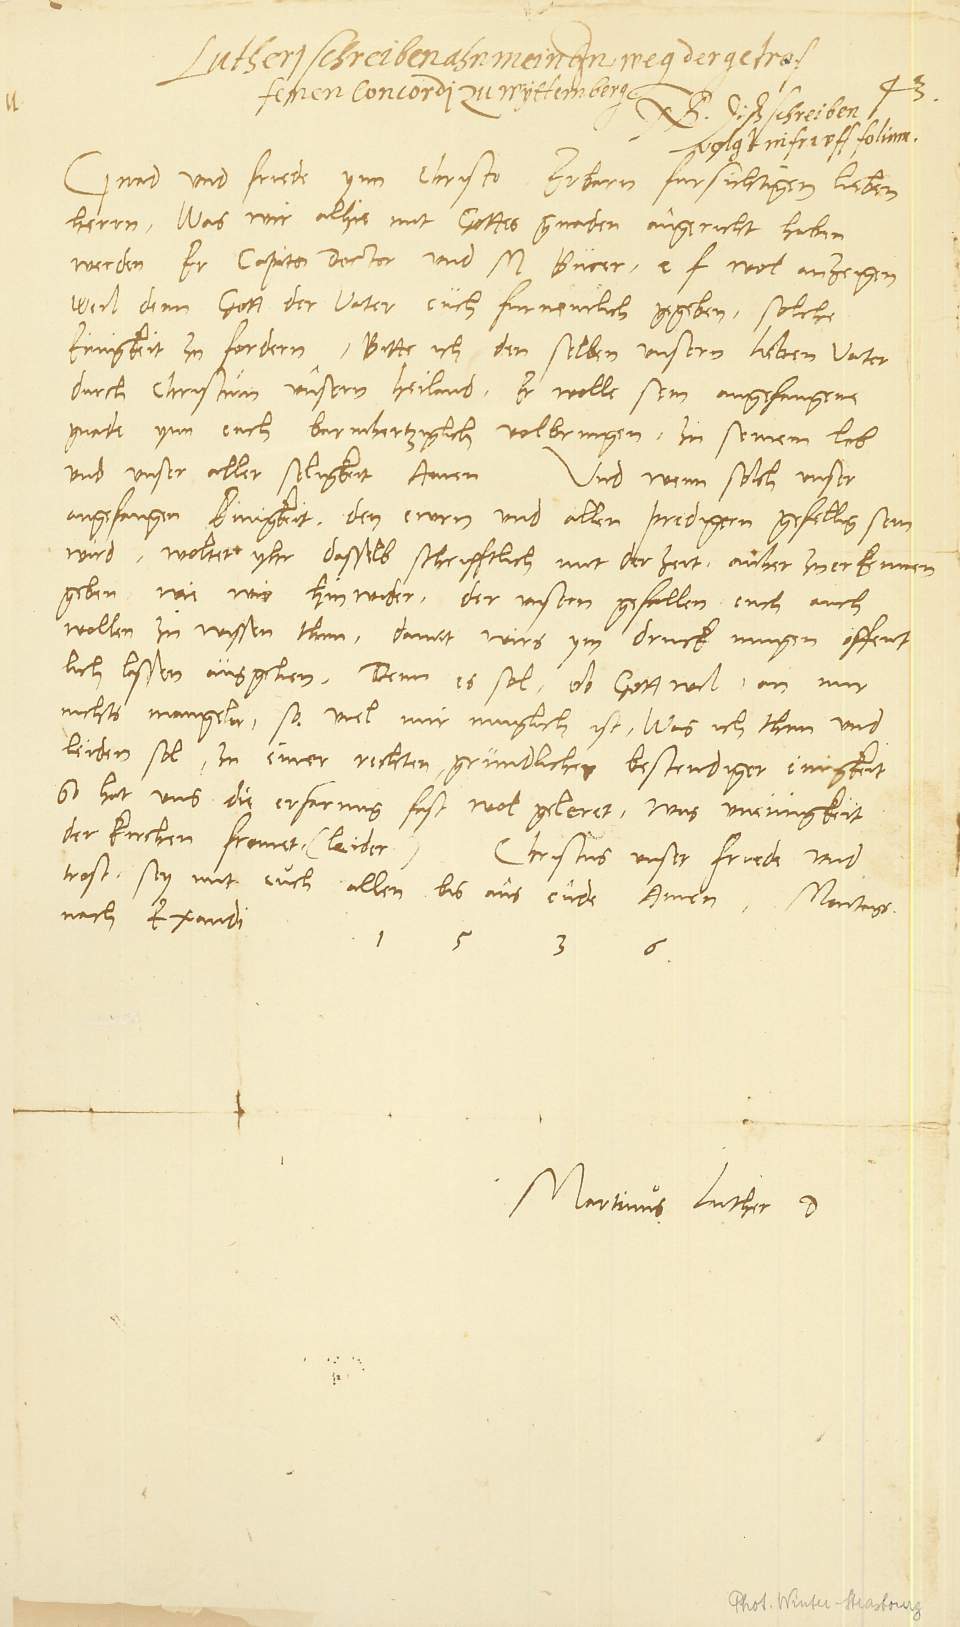 Lutherj schreiben ahn mein Hn weg der getrof
fenen Concordj zu wyttemberg
43.
NB. diß schreiben
volgt infra uff folium.
Gnad und friede ynn Christo Erbarn fursichtigen lieben
herrn, Was wir alhie mit Gottes gnaden angericht haben
werden Er Capito Doctor und M Bucer, e f wol anzeigen
Weil denn Gott der Vater euch furnemlich gegeben, solche
Einigkeit zu fordern, Bitte ich den selben unsern lieben Vater
durch Christum unsern heiland, Er wolle sein angefangene
gnade ynn euch barmhertziglich volbringen, zu seinem lob
und unser aller seligkeit Amen Und wenn solch unser
angefangen Einigkeit, den ewrn und allen predigern gefellig sein
wird, wollet yhr dasselb schrifftlich mit der zeit, anher zuerkennen
geben wie wir hinwider, der unsern gefallen euch auch
wollen zu wissen thun, damit wirs ym druck mugen offent
lich lassen ausgehen, Denn es sol, ob Gott wil, an mir
nichts mangeln, so viel mir muglich ist, Was ich thun und
leiden sol, zu einer rechten grundlicher bestendiger einigkeit
So hat uns die erfarung fast wol geleret, was uneinigkeit
der kirchen fromet, (leider) Christus unser friede und
trost, sey mit euch allen bis ans ende Amen, Montags
nach Exaudi
1 5 3 6
Martinus Luther D
Phot. Winter-Strasbourg